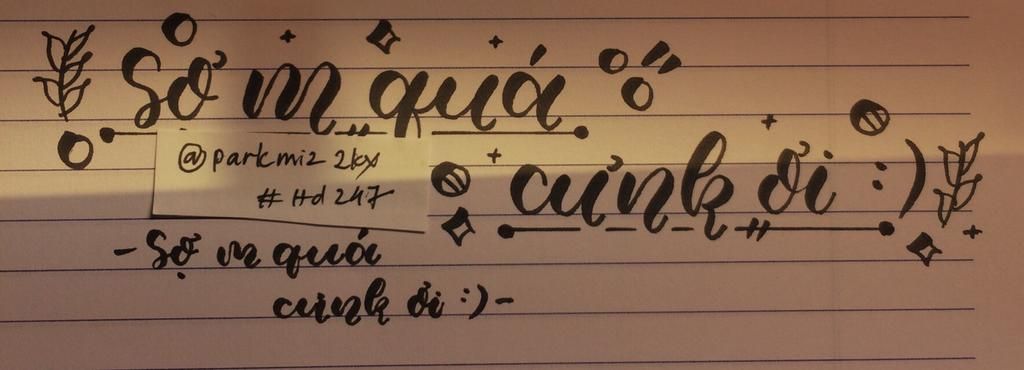 Sợ m quá
cưnk ơi :)
@parkmiz 2kx
# Hd 247
- Sợ m quá
cưnk ơi :) -